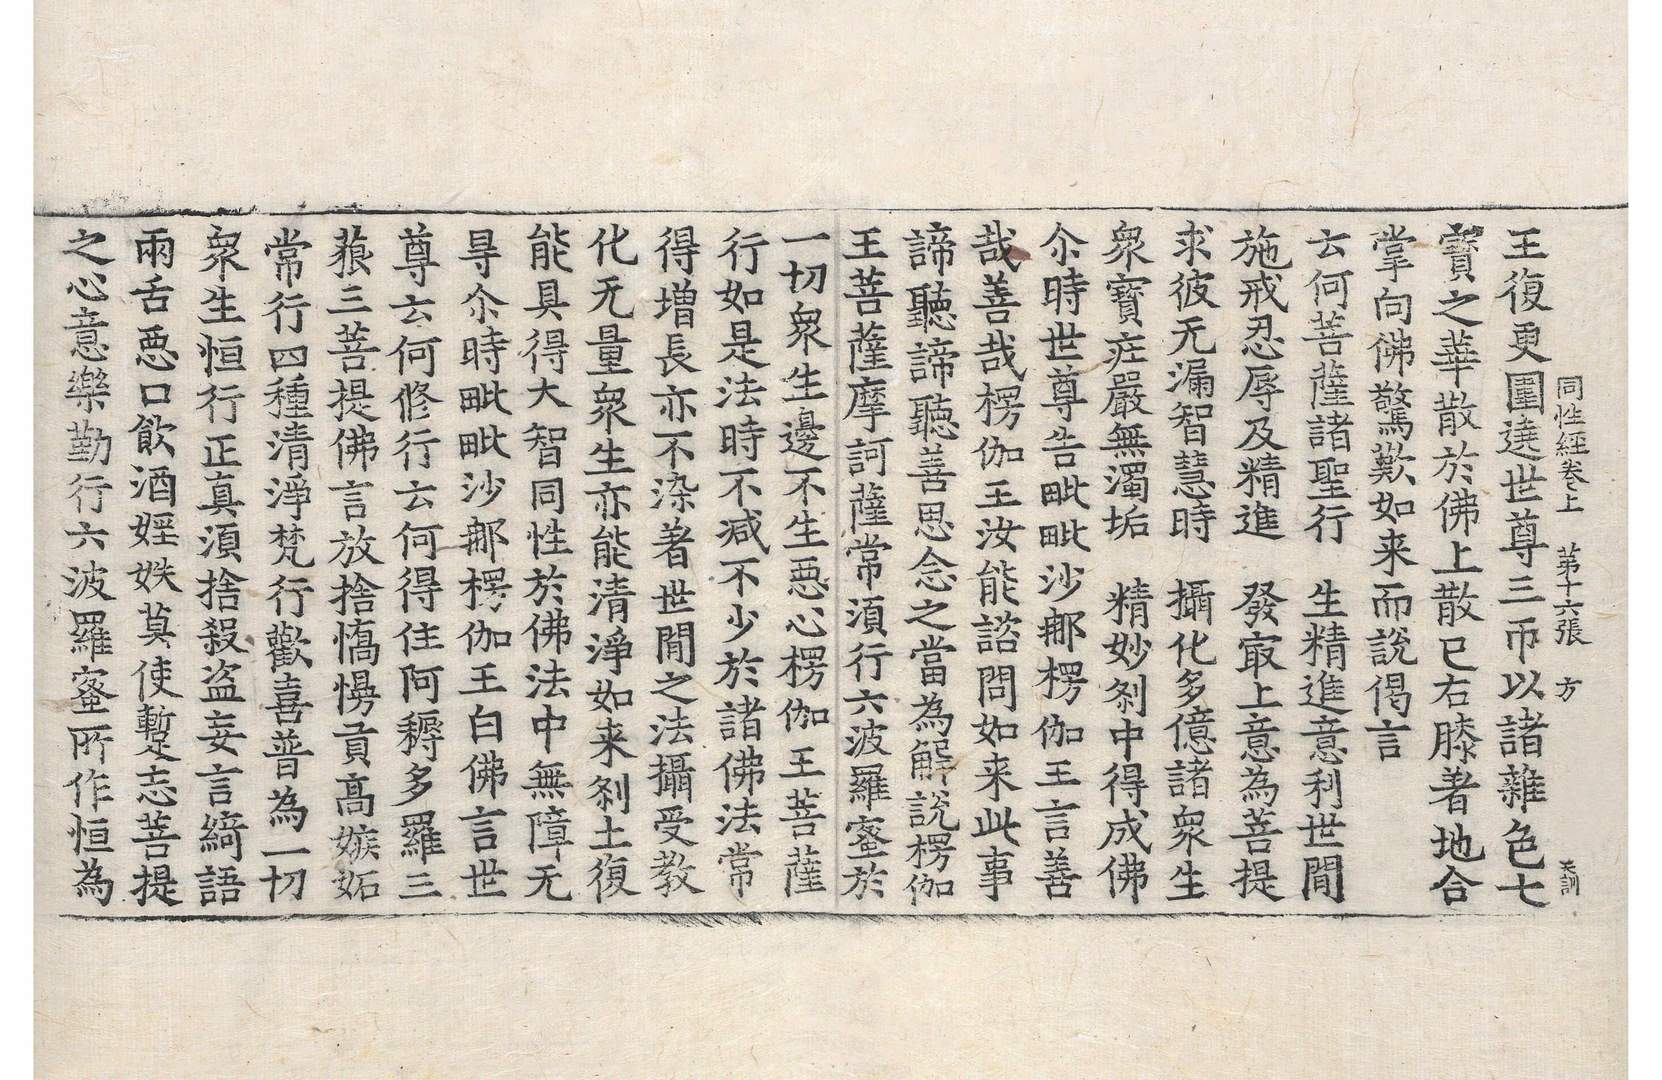 同性經卷上 第十六張 方 天訓
王復更圍遶世尊三帀以諸雜色七
寶之華散於佛上散已右膝著地合
掌向佛驚歎如来而說偈言
云何菩薩諸聖行 生精進意利世閒
施戒忍辱及精進 發㝡上意為菩提
求彼无漏智慧時 攝化多億諸衆生
衆寶疘嚴無濁垢 精妙刹中得成佛
尒時世尊告毗毗沙郍楞伽王言善
哉善哉楞伽王汝能諮問如来此事
諦聽諦聽善思念之當為解說楞伽
王菩薩摩訶薩常須行六波羅蜜於
一切衆生邊不生惡心楞伽王菩薩
行如是法時不减不少於諸佛法常
得增長亦不染著世閒之法攝受教
化无量衆生亦能清淨如来刹土復
能具得大智同性於佛法中無障无
㝵尒時毗毗沙郍楞伽王白佛言世
尊云何修行云何得住阿耨多羅三
藐三菩提佛言放捨憍慢貢高嫉妬
常行四種清淨梵行歡喜普為一切
衆生恒行正真須捨殺盗妄言綺語
兩舌惡口飲酒婬妷莫使蹔志菩提
之心意樂勤行六波羅蜜所作恒為